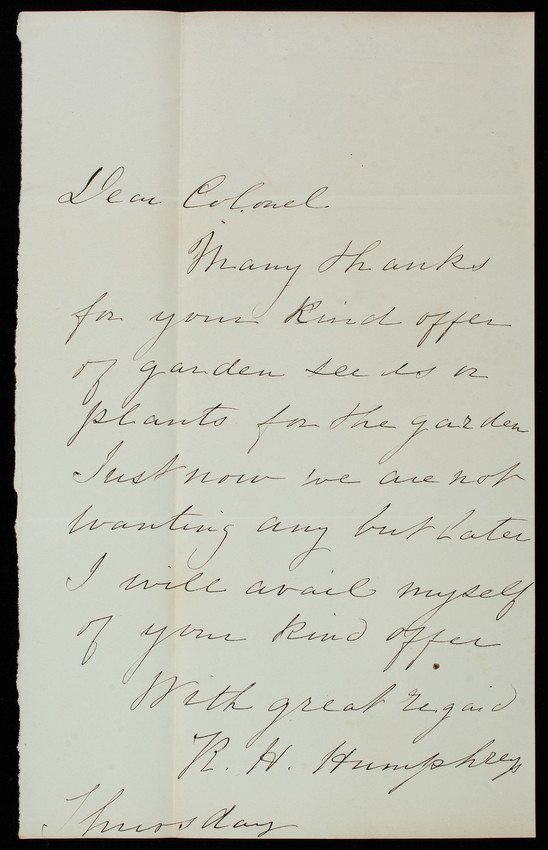 Dear Colonel
Many thanks
for your kind offer
of garden seeds or
plants for the garden
Just now we are not
wanting any but later
I will avail myself
of your kind offer
With great regard
R. H. Humphreys
Thursday